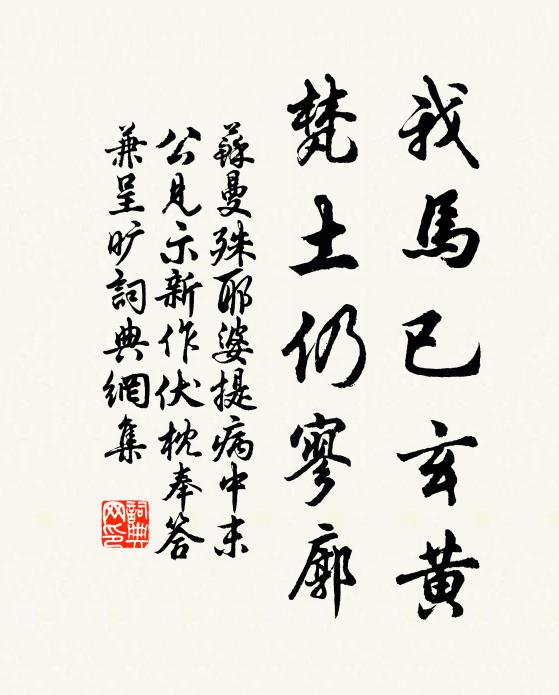 我馬已玄黃
梵土仍寥廓
蘇曼殊耶婆提病中末
公見示新作伏枕奉答
兼呈旷詞典網集
詞典
网印